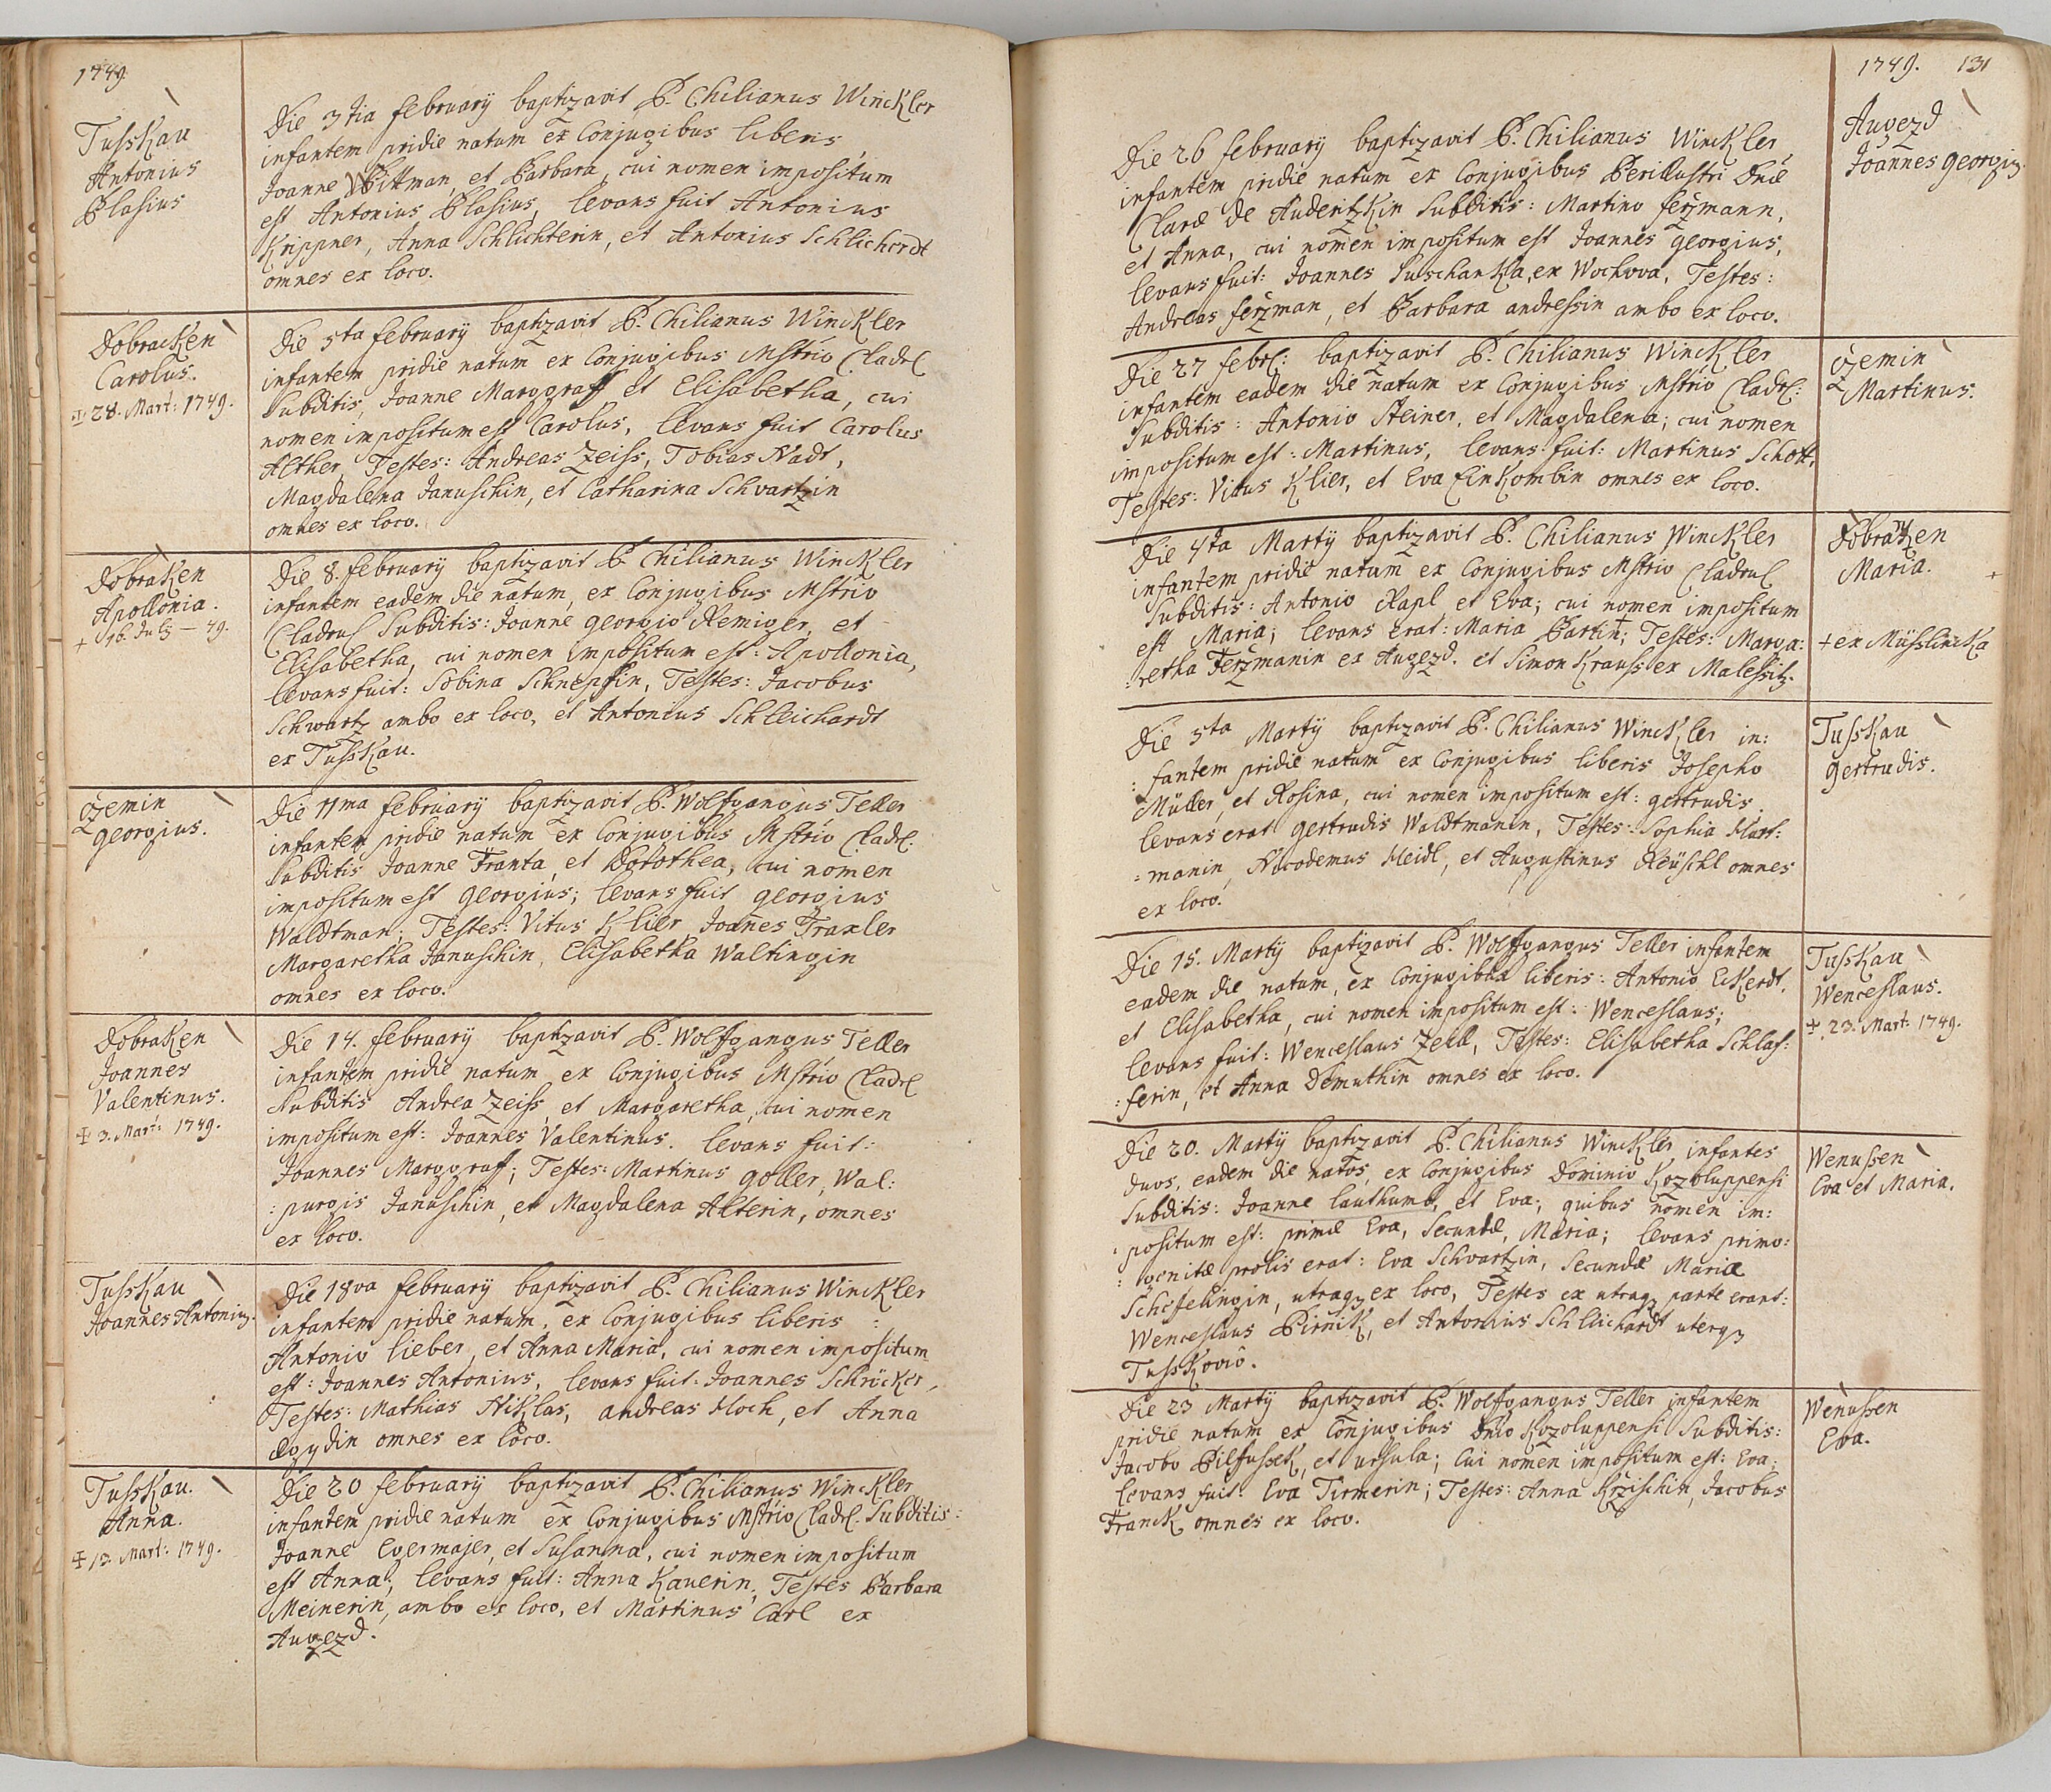 1749.
Tusskau
Antonius
Blasius
Die 3tia february baptizavit P. Chilianus Winckler
infantem pridie natum ex Conjugibus liberis
Joanne Pittman, et Barbara, cui nomen impositum
est Antonius Blasius, levans fuit Antonius
Krippner, Anna Schlichterin, et Antonius Schlicherdt
omnes ex loco.
Dobracken
Carolus.
✝ 28. Mart: 1749.
Die 5ta february baptizavit P. Chilianus Winckler
infantem pridie natum ex Conjugibus Mstrio Cladrl
Subditis, Joanne Marggraff et Elisabetha, cui
nomen impositum est Carolus, levans fuit Carolus
Alther, Testes: Andreas Zeiss, Tobias Nadt,
Magdalena Januschin, et Catharina Schvartzin
omnes ex loco.
Dobraken
Apollonia.
+ 16. July – 49.
Die 8. february baptizavit P. Chilianus Winckler
infantem eadem die natum, ex Conjugibus Mstrio
Cladrul Subditis: Joanne georgio Remiger, et
Elisabetha, cui nomen impositum est: Apollonia,
levans fuit: Sobina Schnepfin, Testes: Jacobus
Schwartz ambo ex loco, et Antonius Schleichardt
ex Tusskau.
Ozemin
georgius.
Die 11ma february baptizavit P. Wolfgangus Teller
infantem pridie natum ex Conjugibus Mstrio Cladrl:
Subditis Joanne Franta, et Dorothea, cui nomen
impositum est georgius; levans fuit georgius
Waldtman; Testes: Vitus Klier, Joannes Traxler
Margaretha Januschin, Elisabetha Waltingin
omnes ex loco.
Dobraken
Joannes
Valentinus.
✝ 3. Mart: 1749.
Die 14. february baptizavit P. Wolfgangus Teller
infantem pridie natum ex Conjugibus Mstrio Cladrl
Subditis Andrea Zeiss, et Margaretha, cui nomen
impositum est: Joannes Valentinus. levans fuit:
Joannes Marggraff; Testes: Martinus goller, Wal:
:purgis Januschin, et Magdalena Alterin, omnes
ex loco.
Tusskau
Joannes Antonius.
Die 18va february baptizavit P. Chilianus Winckler
infantem pridie natum, ex Conjugibus liberis :
Antonio lieber, et Anna Maria, cui nomen impositum
est: Joannes Antonius, levans fuit: Joannes Schrücker,
Testes: Mathias Niklas, andreas Hoch, et Anna
Egydin omnes ex loco.
Tusskau.
Anna.
✝ 12. Mart: 1749.
Die 20 february baptizavit P. Chilianus Winckler
infantem pridie natum ex Conjugibus Mstrio Cladrl: Subditis:
Joanne Evermajer, et Susanna, cui nomen impositum
est Anna, levans fuit: Anna Kauerin, Testes Barbara
Meinerin, ambo ex loco, et Martinus Carl ex
Augezd.
1749. 131
Augezd
Joannes georgius.
Die 26 february baptizavit P. Chilianus Winckler
infantem pridie natum ex Conjugibus Perillustri Dnae
Clarae de Audentzkin Subditis: Martino ferzmann,
et Anna, cui nomen impositum est Joannes georgius,
levans fuit: Joannes Suschanka, ex Wochova, Testes:
Andreas ferzman, et Barbara andressin ambo ex loco.
Ozemin
Martinus.
Die 27 febrl: baptizavit P. Chilianus Winckler
infantem eadem die natum ex Conjugibus Mstrio Cladrl:
Subditis: Antonio Steiner, et Magdalena; cui nomen
impositum est: Martinus, levans fuit: Martinus Schott,
Testes: Vitus Klier, et Eva Einkombin omnes ex loco.
Dobraken
Maria.
Die 4ta Marty baptizavit P. Chilianus Winckler
infantem pridie natum ex Conjugibus Mstrio Cladrul
Subditis: Antonio Rapl et Eva; cui nomen impositum
est Maria; levans erat: Maria Bartin +; Testes: Marga:
:retha Ferzmanin ex Augezd. et Simon Krauss ex Malessitz.
+ ex Müsslincka
Tusskau
gertrudis.
Die 5ta Marty baptizavit P. Chilianus Winckler in:
:fantem pridie natum ex Conjugibus liberis Josepho
Müller, et Rosina, cui nomen impositum est: gertrudis.
levans erat gertrudis Waldtmanin, Testes: Sophia Hart:
:manin, Nicodemus Heidl, et Augustinus Reüschl omnes
ex loco.
Tusskau
Wenceslaus.
✝ 23. Mart: 1749.
Die 15. Marty baptizavit P. Wolfgangus Teller infantem
eadem die natum, ex Conjugibus liberis: Antonio Eckerdt,
et Elisabetha, cui nomen impositum est: Wenceslaus;
levans fuit: Wenceslaus Zekl, Testes: Elisabetha Schlaf:
:ferin, et Anna Demuthin omnes ex loco.
Wenussen
Eva et Maria.
Die 20. Marty baptizavit P. Chilianus Winckler infantes
duos, eadem die natos, ex Conjugibus Dominio Kozoluppensi
Subditis: Joanne lauthumb, et Eva; quibus nomen im:
:positum est: primae Eva, Secundae, Maria; levans primo:
:genitae prolis erat: Eva Schvartzin, Secundae Mariae
Schefelingin, utraq3 ex loco, Testes ex utraq3 parte erant:
Wenceslaus Pirnik, et Antonius Schleichardt uterq3
Tusskovio.
Wenussen
Eva.
Die 23 Marty baptizavit P. Wolfgangus Teller infantem
pridie natum ex Conjugibus Dnio Kozoluppensi Subditis:
Jacobo Pilfussek, et ursula; cui nomen impositum est: Eva;
levans fuit: Eva Tirmerin; Testes: Anna Krzischin, Jacobus
Franck omnes ex loco.